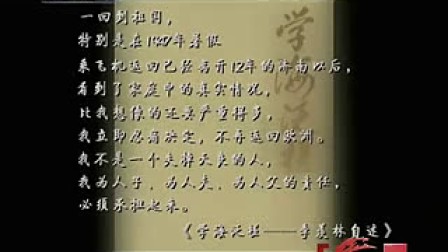 一回到祖国，
特别是在1947年暑假
乘飞机返回已经离开12年的济南以后，
看到了家庭中的真实情况，
比我想像的还要严重得多，
我立即忍痛决定，不再返回欧洲。
我不是一个失掉天良的人，
我为人子、为人夫、为人父的责任，
必须承担起来。
《学海泛槎——季羡林自述》
学海泛槎